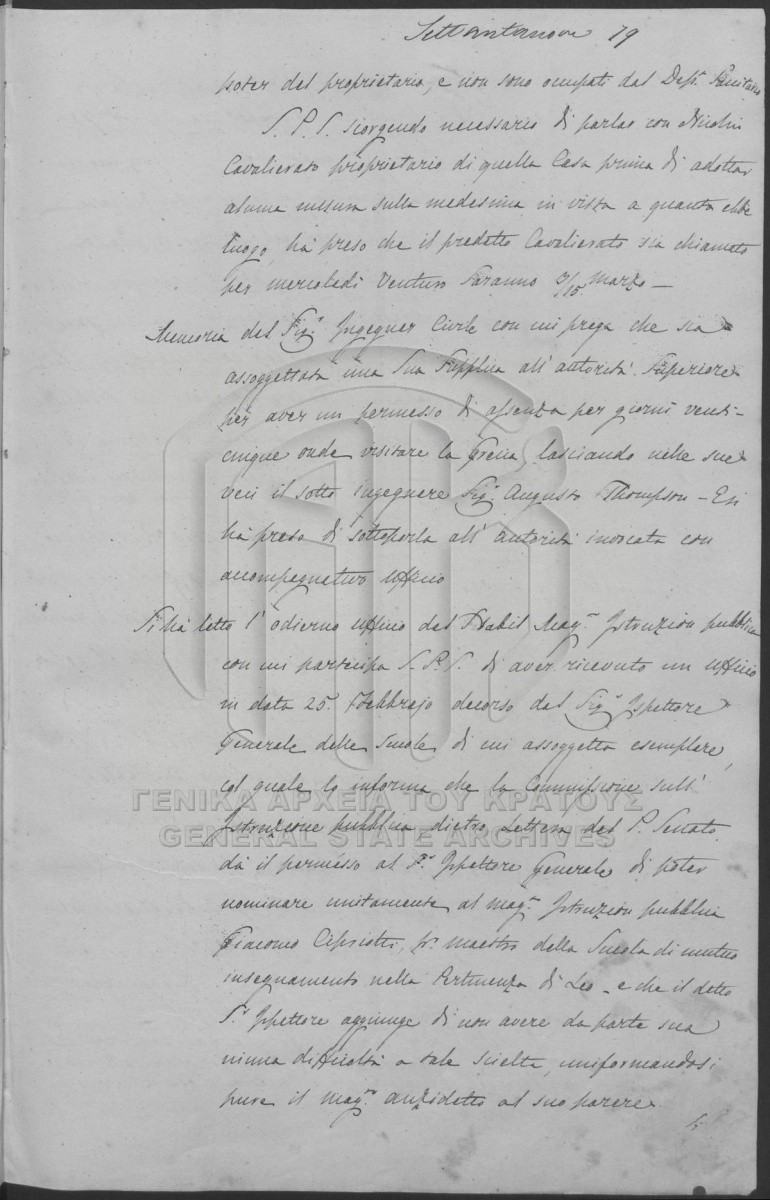 Settantanove 79
poter del proprietario, e non sono ocupati dal Dep.º Sanitario
S. P. S. scorgendo necessario di parlar con Nicolin
Cavalierato proprietario di quella Casa prima di adottar
alcuna misura sulla medesima in vista a quanto ebbe
luogo, ha preso che il predetto Cavalierato sia chiamato
per mercoledi Venturo Saranno 3/15 marzo —
Memoria del Sig.r Ingegner Civile con cui prega che sia
assoggettata una Sua Supplica all' autorità Superiore
per aver un permesso di assenza per giorni venti-
cinque onde visitare la Grecia, lasciando nelle sue
veci il sotto ingegnere Sig.r Augusto Thompson – Esi
ha preso di sottoporla all' autorità invocata con
accompagnativo Ufficio
Si ha letto l' odierno Ufficio del Nobil Mag.n Istruzion pubblica
con cui participa S. P. S. di aver ricevuto un Ufficio
in data 25. Febbrajo decorso dal Sig.r Ispettore
Generale delle Scuole di cui assoggetta esemplare,
col quale lo informa che la Commissione sull'
Istruzione pubblica dietro Lettera del P. Senato
dà il permesso al S.r Ispettore Generale di poter
nominare unitamente al mag.n Istruzion pubblica
Giacomo Cipriotti, p.r maestro della Scuola di mutuo
insegnamento nella Pertinenza di Leo – e che il detto
S.r Ispettore aggiunge di non avere da parte sua
niuna difficoltà a tale scielta, uniformandosi
pure il mag.n anzidetto al suo parere
ΓΕΝΙΚΑ ΑΡΧΕΙΑ ΤΟΥ ΚΡΑΤΟΥΣ
GENERAL STATE ARCHIVES